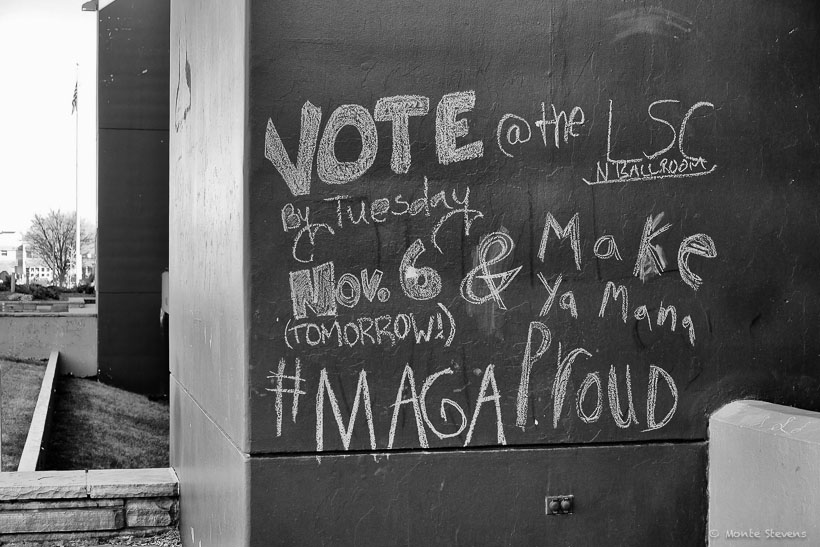 VOTE @the LSC
N BALLROOM
By Tuesday
Nov. 6 & Make
Ya Mama
(TOMORROW!)
Proud
#MAGA
© Monte Stevens